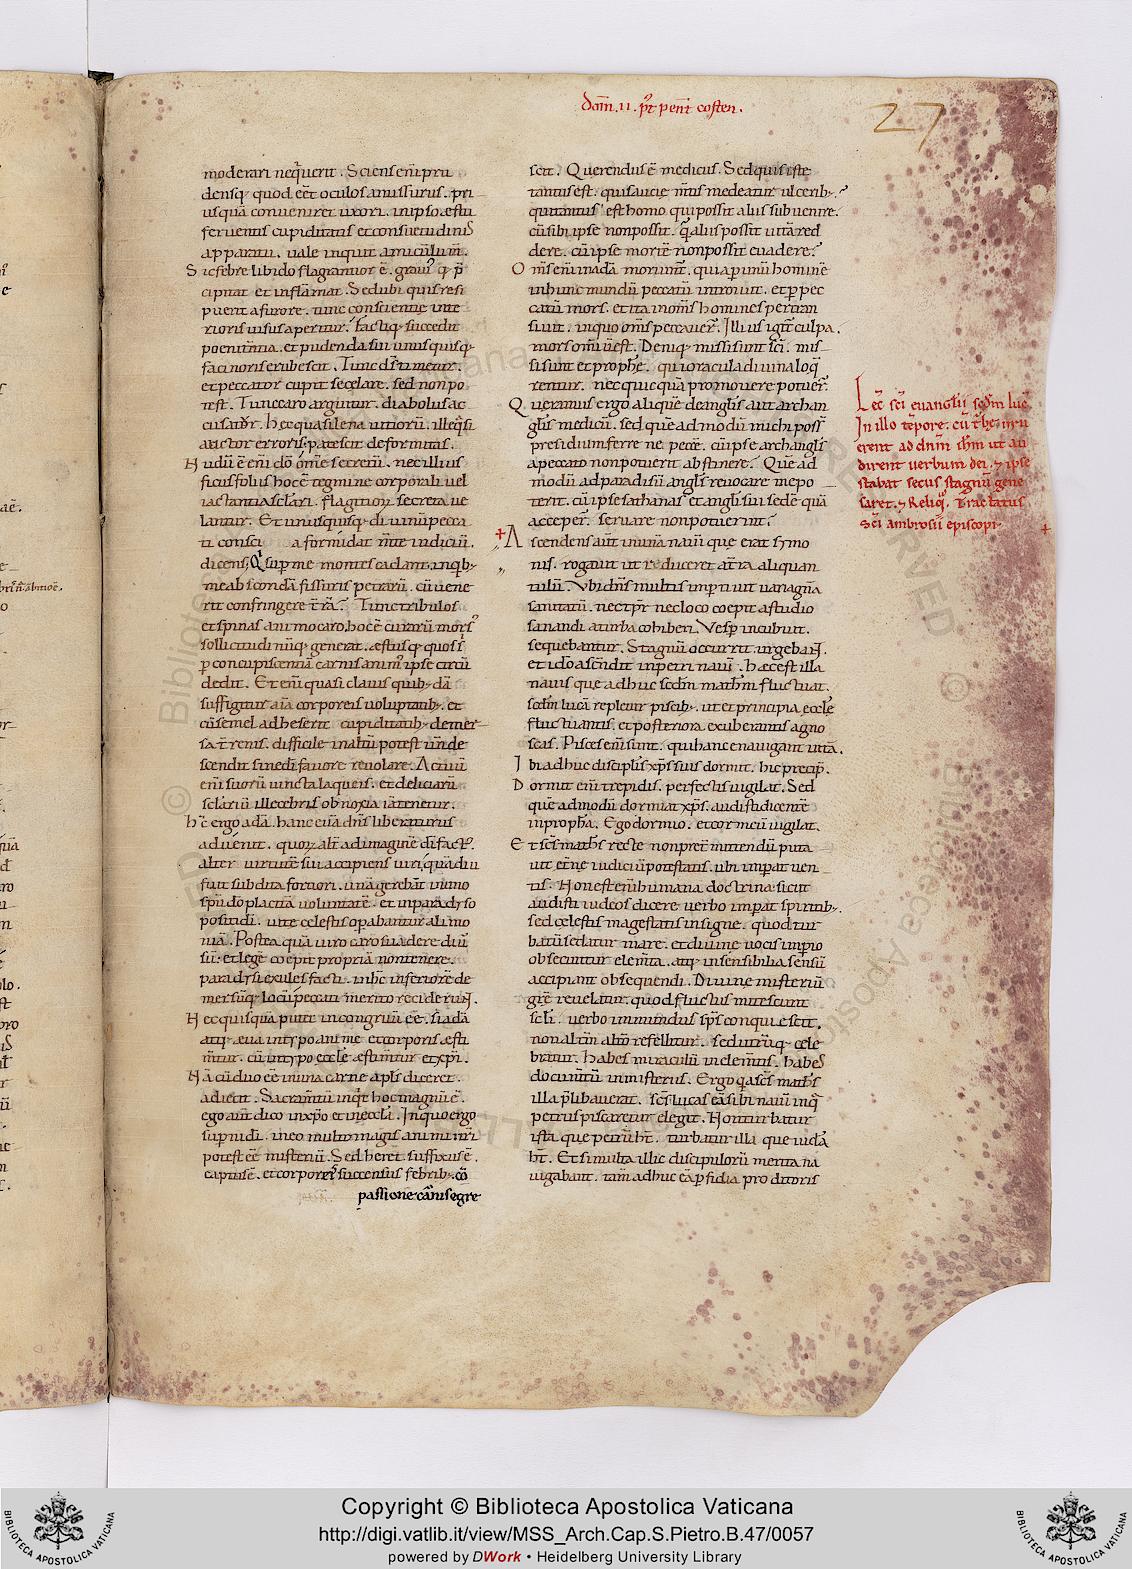 dom̄ .II. p̄t penī costen.
27
moderari nequ̇erit. Sciens eni pru
densq; quod eēt oculos amissurus. pri
usquā conveniret uxori. in ipso ęstu
ferventis cupiditatis et consuetudinis
apparatu. vale inquit amicū lum̄.
Sic febre libido flagrantior ē.
cipitat et inflāmat. Sed ubi quis resi
puerit a furore. tunc conscientię inte
rioris visus aperitur. factiq; succedit
poenitentia. et pudenda sui unusquisq;
facinoris erubescit. Tunc
et peccator cupit se celare. sed non po
test. Tunc caro arguitur. diabolus ac
cusatur. Hec quasi lena vitiorū. ille q̄si
auctor erroris. patescit deformitas.
Nudū ē eni dō om̄e secretū. nec illius
ficus folius hoc ē tegmine corporali vel
iactantia sclāri. flagitior secreta ve
lantur. Et unusquisq; divinū pecca
ti consci a formidat
dicens; super me montes cadant.
me abscondā fissuris petrarū. cū vene
rit confringere t̄rā. Tunc tribulos
et spinas animo caro, hoc ē curarū
sollicitudinūq; generat.
p concupiscentiā carnis animū ipse circū
dedit. Et eni quasi clavis quib; dā
suffigitur aīa corporeis voluptatib;. et
cū semel adheserit cupiditatib; demer
sa t̄renis. difficile in altū potest unde
scendit sine dī favore revolare. Actuū
eni suorū vincta laqueis. et deliciarū
sclāriū illecebris obnoxia tenetur.
hc̄ ergo adā. hanc evā dn̄s liberaturus
advenit. quor alt̄ ad imaginē dī factus.
alter virtutē sui accipiens viri, quādiu
fuit subdita fortiori. unā gerebāt in uno
spū dō placitā voluntatē. et in paradyso
positi dī. vite celestis opabantur alimo
niā. Postea quā viro caro suadere
et legē coepit propriā non tenere.
paradysi exules facti. in hc̄ inferiorē de
mersūq; locū peccati merito reciderunt.
Nec quisquā putet incongruū eē. si adā
atq; eva in typo anime et corporis ęsti
mtur. cū in typo ecclē ęstimtur et xp̄i.
Nā cū duo eē in una carne apls̄ diceret.
adiecit. Sacramtū inq̇t hoc magnū ē.
ego aut̄ dico in xp̄o et in ecclā. In quo ergo
sup nidī. in eo multo magis animi nr̄i
potest eē misteriū. Sed heret suffixus ē.
captus ē. et corporeis succensus febrib; cō
passione carnis egre
scit. Querendus ē medicus. Sed quis iste
tantus est. qui saucię mt̄is medeatur ulcerib;?
quis tantus est homo qui possit aliis subvenire.
cū sibi ipse non possit. q̄ aliis possit vitā red
dere. cū ipse mortē non possit evadere?
Om̄s eni in adā moriunt̄. quia p unū hominē
in hunc mundū peccatū introivit. et p pec
catū mors. et ita in omīs homines pertran
siuit. in quo om̄s peccaver̄. Illius igit̄ culpa.
mors omniū est. Deniq; missi sunt scī. mis
si sunt et prophē. qui oracula divina loq̄
rentur. nec quicquā promovere potuer̄.
Queramus ergo aliquē de anglis aut archan
glis medicū. sed quē admodū michi poss̄
presidium ferre ne peccē. cū ipse archanglis
a peccato non potuerit abstinere? Quē ad
modū ad paradisū angls̄ revocare me po
terit. cū ipse sathanas et angli sui sedē quā
acceper̄. servare non potuerint?
Ascendens aut̄ in unā navī que erat symo
nis. rogavit ut reduceret a t̄ra aliquan
tulū. Ubi dn̄s multis imp̄tivit varia gn̄a
sanitatū. nec tp̄r nec loco coepit a studio
sanandi a turba cohiberi. Vesp incubuit.
sequebantur. Stagnū occurrit urgebant.
et ido ascendit in petri navī. Hęc est illa
navis que adhuc scdm̄ math̄m fluctuat.
scdm̄ lucā repletur piscib;. ut et principia ecclę
fluctuantis. et posteriora exuberantis agno
scas. Pisces eni sunt. qui hanc enavigant vitā.
Ibi adhuc discipulis xp̄s suis dormit. hic precip̄.
Dormit eni trepidis. perfectis vigilat. Sed
quē admodū dormiat xp̄s. audisti dicentē
in propha. Ego dormio. et cor meū vigilat.
Et scs̄ maths̄ recte non pret̄ mittendū puta
vit et̄nę iudiciū potestatis. ubi imp̄at ven
tis. Non est eni humana doctrina sicut
audisti iudeos dicere. verbo imp̄at spiritib;.
sed celestis magestatis insigne. quod tur
batū sedatur mare. et divine vocis imp̄io
obsecuntur elem̄ta. atq; insensibilia sensū
accipiunt obsequendi. Divine misteriū
grē revelatur. quod fluctus mitescunt
scli. verbo immundus sp̄s conquiescit.
non altm̄ altro refellitur. sed utrūq; cele
bratur. habes miraculū in elem̄tis. habes
documtū in misteriis. Ergo q̄a scs̄ maths̄
illa p̄libaverat. scs̄ lucas eā sibi navī inq̇
petrus piscaretur elegit. Non turbatur
ista que petrū ht̄. turbatur illa que iudā
ht̄. Et si multa illic discipulorū merita na
vigabant. tam̄ adhuc eā pfidia proditoris
Lec̄ scī evangłii scd̄m luc̄
In illo tēpore. cū t̄be irru
erent ad dn̄m ihm̄ ut au
dirent verbum dei. & ipse
stabat secus stagnū gene
saret. & Reliq̇. Tractatus
Scī ambrosii episcopi.
Copyright © Biblioteca Apostolica Vaticana
http://digi.vatlib.it/view/MSS_Arch.Cap.S.Pietro.B.47/0057
powered by DWork • Heidelberg University Library
BIBLIOTECA APOSTOLICA VATICANA
BIBLIOTECA APOSTOLICA VATICANA